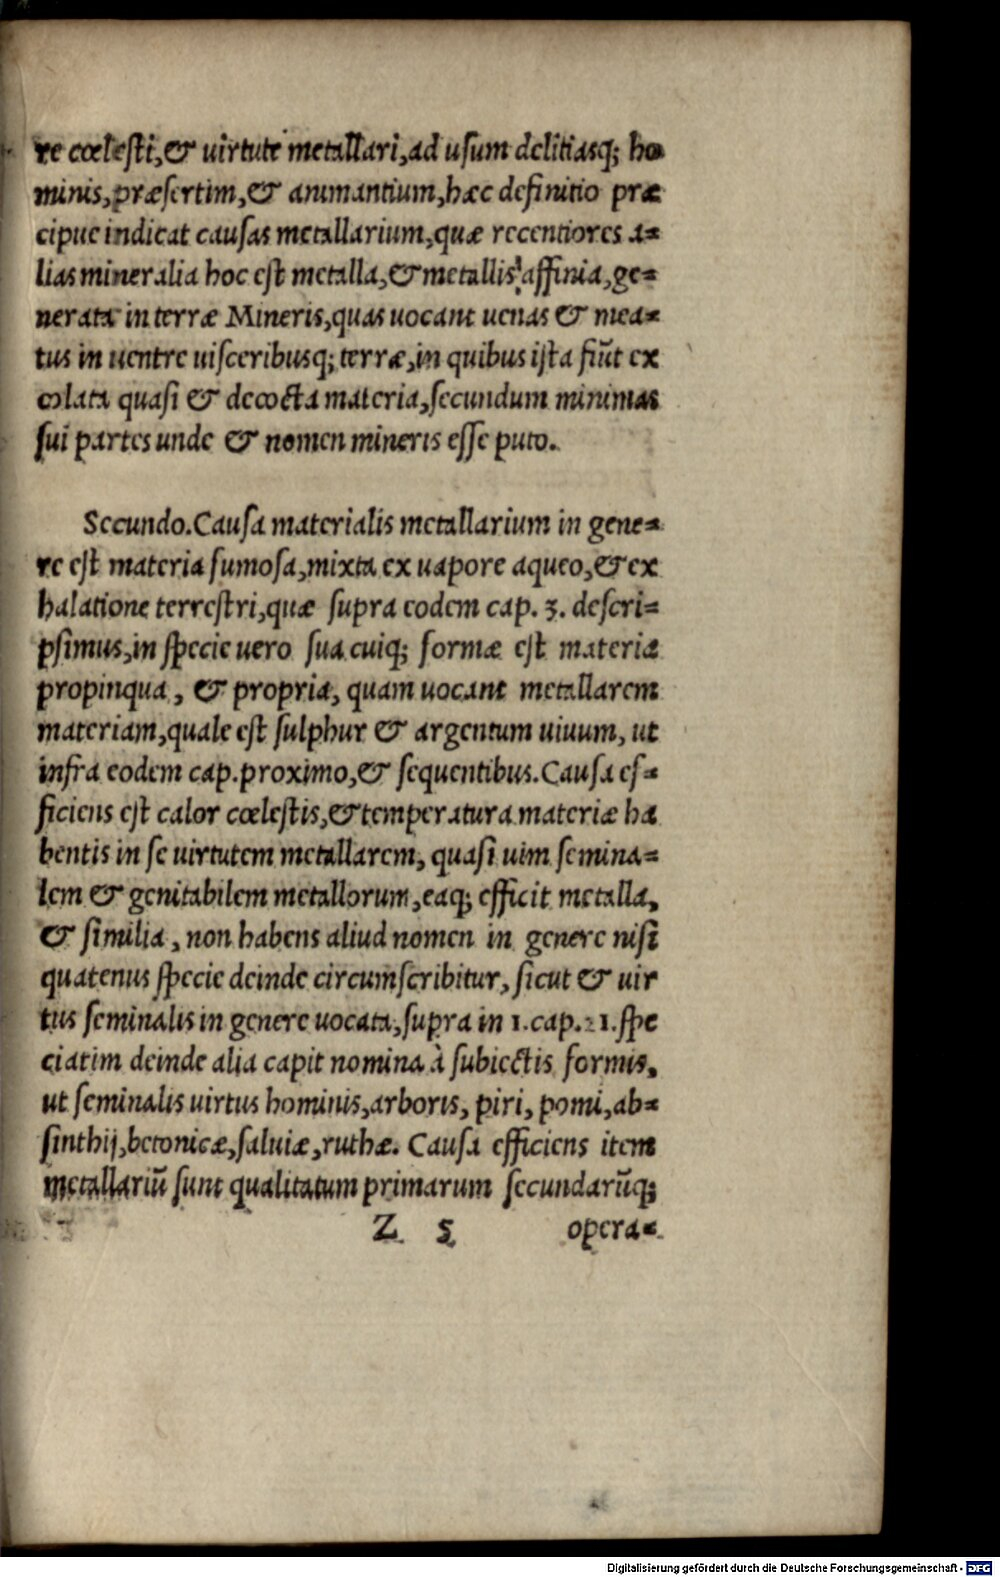 re cœlesti, & uirtute metallari, ad usum delitiasq; ho
minis, præsertim, & animantium, hæc definitio præ
cipue indicat causas metallarium, quæ recentiores a=
lias mineralia hoc est metalla, & metallis affinia, ge=
nerata in terræ Mineris, quas uocant uenas & mea=
tus in uentre uisceribusq; terræ, in quibus ista fiūt ex
colata quasi & decocta materia, secundum minimas
sui partes unde & nomen mineris esse puto.
Secundo. Causa materialis metallarium in gene=
re est materia fumosa, mixta ex uapore aqueo, & ex
halatione terrestri, quæ supra eodem cap. 3. descri=
psimus, in specie uero sua cuiq; formæ est materia
propinqua, & propria, quam uocant metallarem
materiam, quale est sulphur & argentum uiuum, ut
infra eodem cap. proximo, & sequentibus. Causa ef=
ficiens est calor cœlestis, & temperatura materiæ ha
bentis in se uirtutem metallarem, quasi uim semina=
lem & genitabilem metallorum, eaq; efficit metalla,
& similia, non habens aliud nomen in genere nisi
quatenus specie deinde circumscribitur, sicut & uir
tus seminalis in genere uocata, supra in 1. cap. 21. spe
ciatim deinde alia capit nomina à subiectis formis,
ut seminalis uirtus hominis, arboris, piri, pomi, ab=
sinthij, betonicæ, saluiæ, ruthæ. Causa efficiens item
metallariū sunt qualitatum primarum secundarūq;
Z 5 opera=
Digitalisierung gefördert durch die Deutsche Forschungsgemeinschaft - DFG